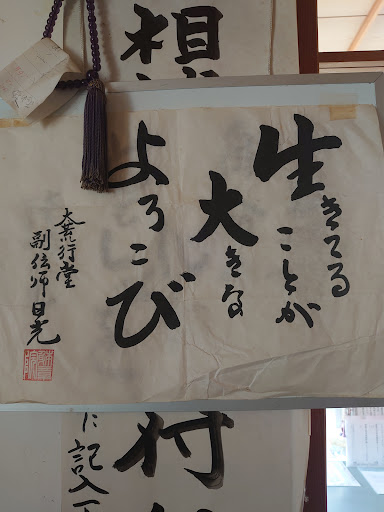 相
生きてる
ことが
大きな
よろこび
大荒行堂
副伝師日光
に記入下